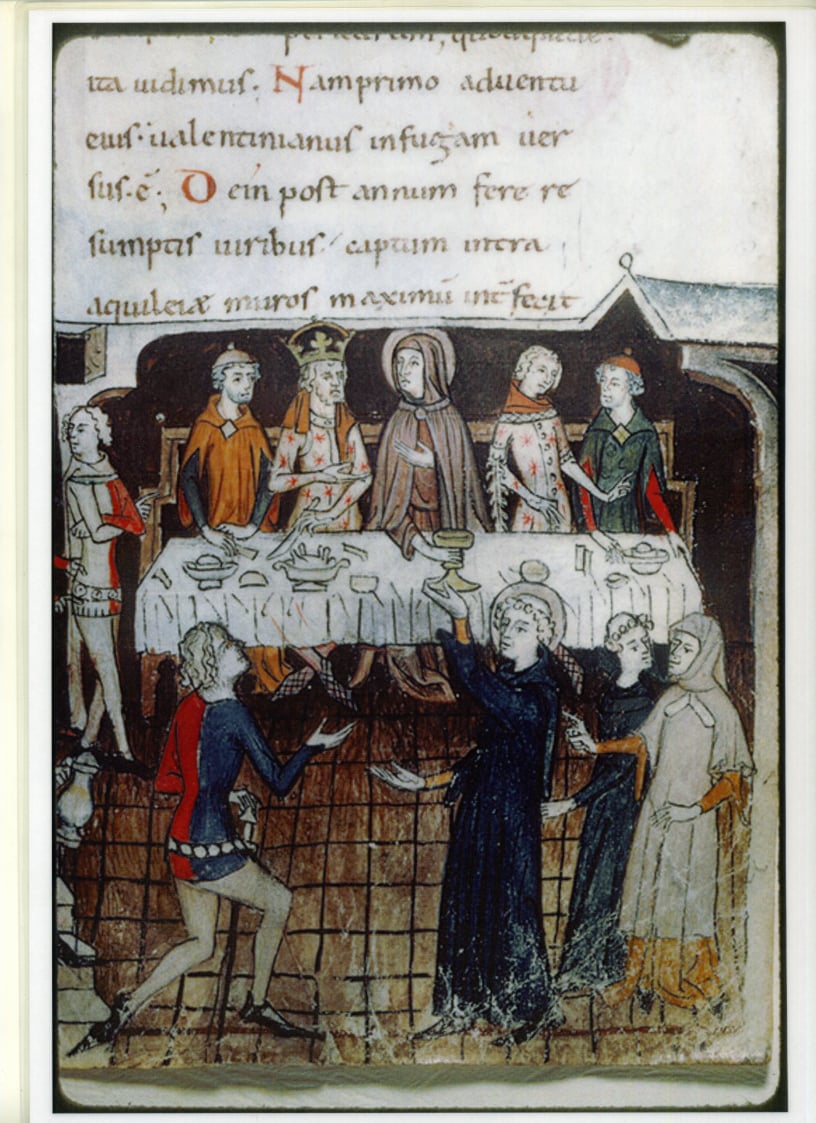 ita uidimus. Nam primo aduentu
eius. ualentinianus in fugam uer
sus. ē. Dein post annum fere re
sumptis uiribus captum intra
aquileiæ muros maximū